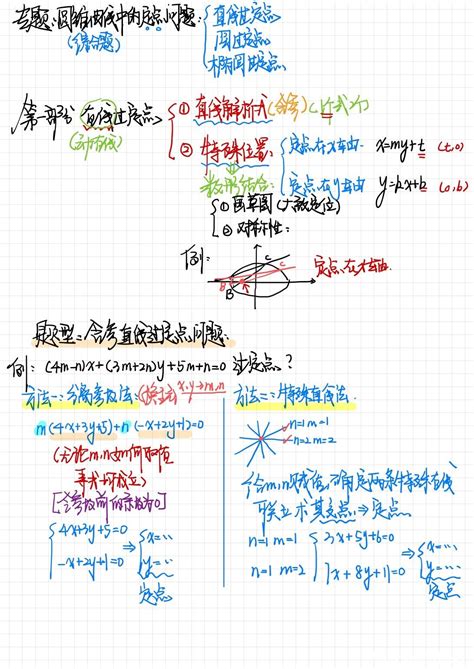 专题:圆锥曲线中的定点问题:{直线过定点
(综合题) 圆过定点
椭圆过定点
第一部分 直线过定点 {① 直线解析式(含参)
(动直线)
② 特殊位置: {定点在x轴: x=my+t (t,0)
数形结合: 定点在y轴 y=kx+b (0,b)
{① 画草图(大致定位)
② 对称性:
例: 定点在x轴
B
C
题型一:含参直线过定点问题:
例: (4m-n)x+(3m+2n)y+5m+n=0 过定点?
方法一:分离参数法:(换主元 x,y→m,n
m(4x+3y+5)+n(-x+2y+1)=0
(无论m,n如何取值
等式均成立)
[含参数前的系数为0]
{4x+3y+5=0 ⇒ {x=…
-x+2y+1=0 y=…
定点
方法二:特殊直线法:
n=1 m=1
n=2 m=2
给m,n赋值,确定两条特殊直线
联立求其交点⇒定点
n=1 m=1 {3x+5y+6=0 ⇒ {x=…
n=1 m=2 7x+8y+11=0 y=…
定点